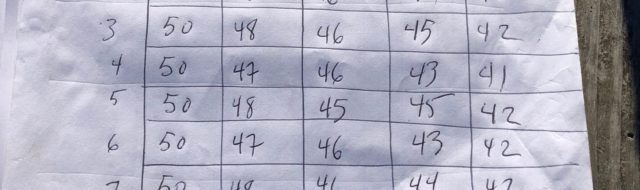 3 50 48 46 45 42
4 50 47 46 43 41
5 50 48 45 45 42
6 50 47 46 43 42
7 50 48 44 42